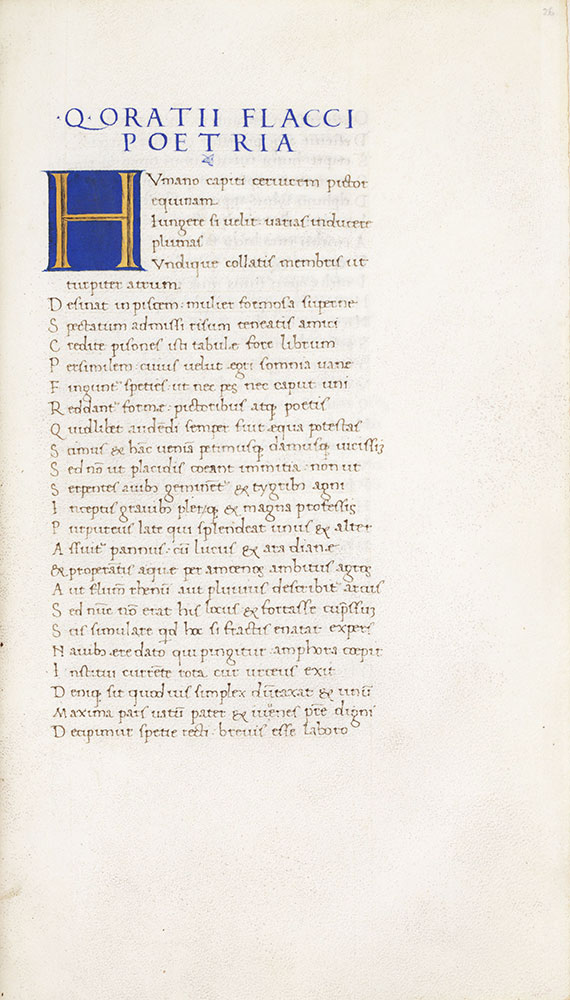 26
·Q·ORATII FLACCI
POETRIA
HVmano capiti ceruicem pictor
equinam
Iungere si uelit uarias inducere
plumas
Vndique collatis membris ut
turpiter atrum
Desinat in piscem: mulier formosa superne
Spectatum admissi risum teneatis amici
Credite pisones isti tabulæ fore librum
Persimilem: cuius uelut ęgri somnia uanę
Fingunt² speties: ut nec pes nec caput uni
Reddant² formæ: pictoribus atq; poetis
Quidlibet audēdi semper fuit ęqua potestas
Scimus & hāc ueniā petimusq; damusq; uicissī
Sed nō ut placidis coeant immitia: non ut
Serpentes auibꝯ geminēt² & tygribꝯ agni
Inceptis grauibꝯ pler̄q; & magna professis
Purpureus late qui splendeat unus & alter
Assuit² pannus: cū lucus & ara dianę
& properātis aquę per amoenos ambitus agros
Aut flum̄ rhenū aut pluuius describit² arcus
Sed nūc nō erat his locus & fortasse cup̄ssū
Scis simulare qd̄ hoc si fractis enatat expers
Nauibꝯ ęre dato qui pingitur amphora cœpit
Institui currēte rota cur urceus exit
Deniq; sit quoduis simplex dūtaxat & unū
Maxima pars uatū pater & iuuēnes pr̄e digni
Decipimur spetie recti: breuis esse laboro